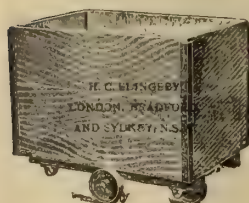 H. C. SLINGSBY
LONDON, BRADFORD,
AND SYDNEY, N.S.W.